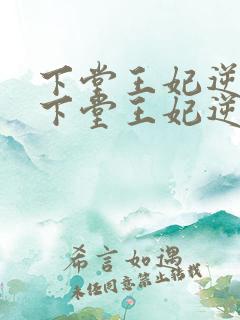 下堂王妃逆
下堂王妃逆
希言如遇
未经同意禁止转载